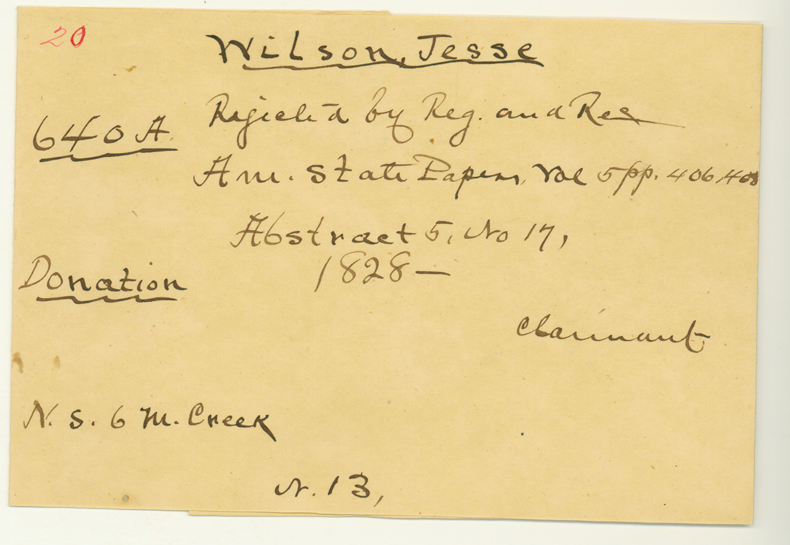 20
Wilson, Jesse
640 A. Rejected by Reg. and Rec
Am. State Papers, Vol 5 pp. 406,408
Abstract 5, No 17,
1828 —
Donation
Claimant
N. S. 6 M. Creek
N. 13,